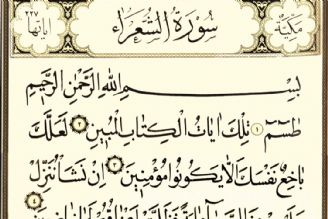 مكية سورة الشعراء آياتها ٢٢٧
بِسْمِ اللهِ الرَّحْمٰنِ الرَّحِيمِ
طٰسٓمٓ ﴿١﴾ تِلْكَ اٰيَاتُ الْكِتَابِ الْمُبِينِ ﴿٢﴾ لَعَلَّكَ
بَاخِعٌ نَفْسَكَ اَلَّا يَكُونُوا مُؤْمِنِينَ ﴿٣﴾ اِنْ نَشَأْ نُنَزِّلْ